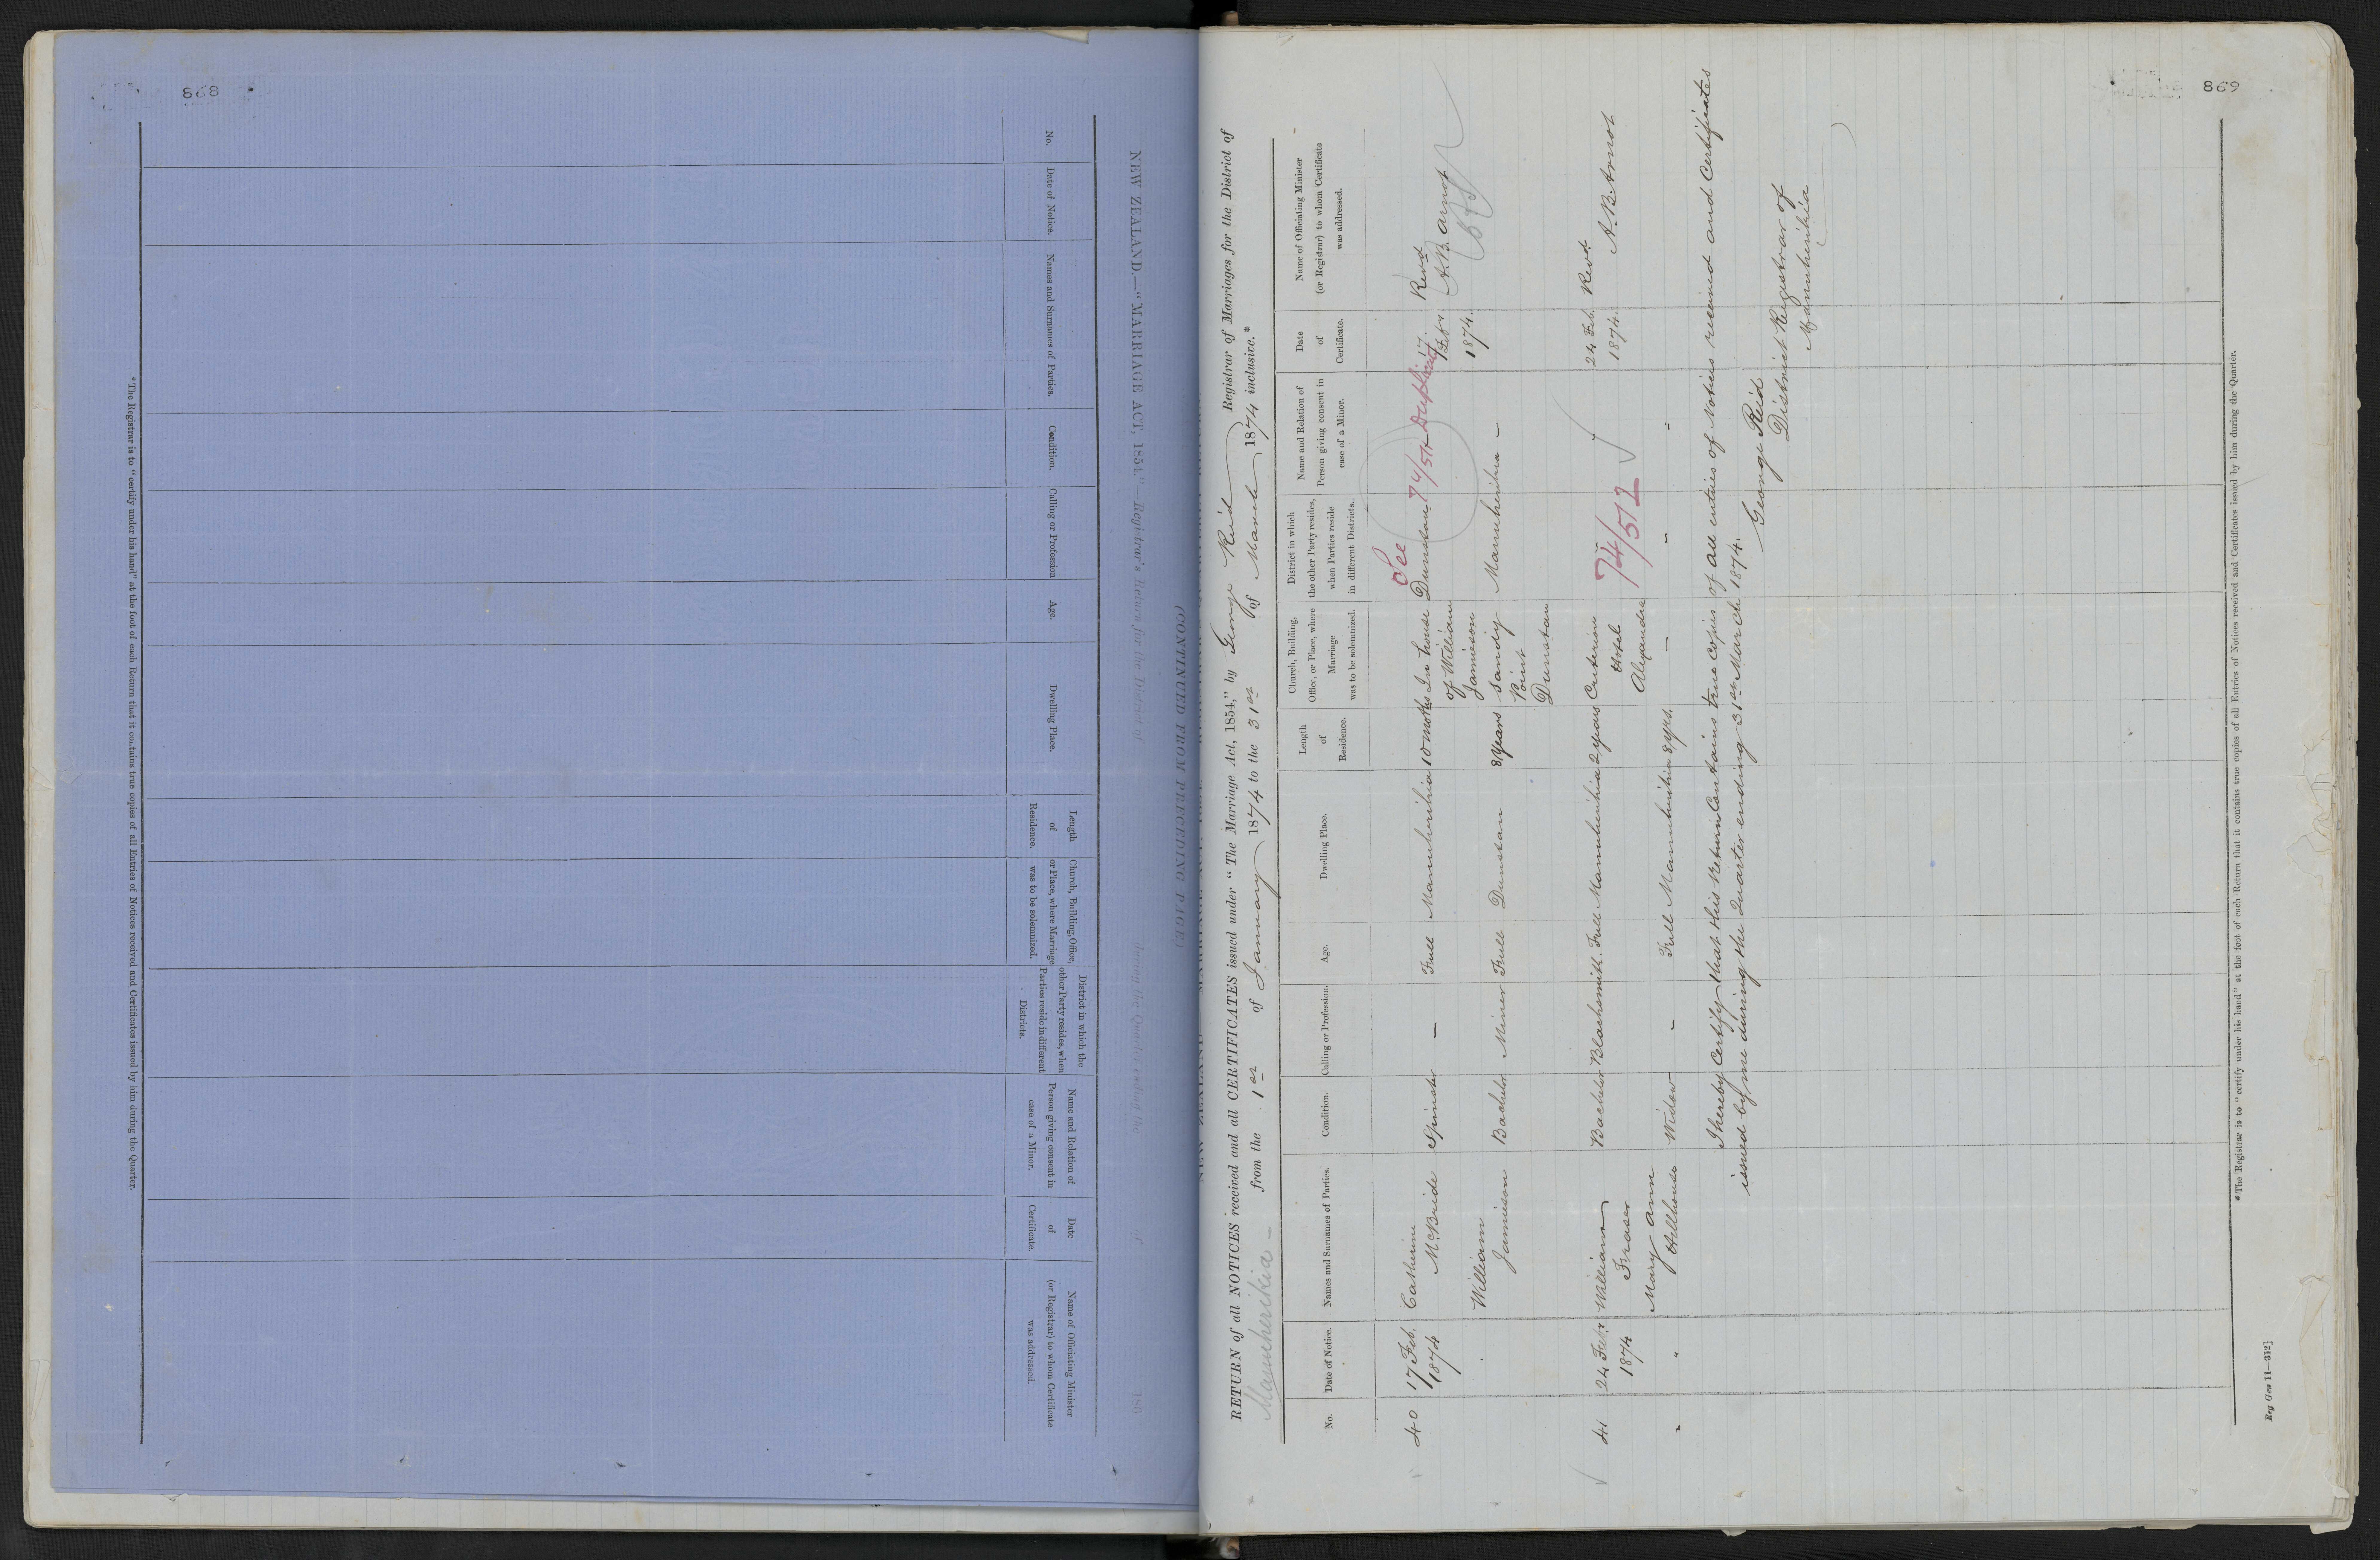 868
NEW ZEALAND.—"MARRIAGE ACT, 1854."—Registrar's Return for the District of
(CONTINUED FROM PRECEDING PAGE)
No.
Date of Notice.
Names and Surnames of Parties.
Condition.
Calling or Profession
Age.
Dwelling Place.
Length
of
Residence.
Church, Building, Office,
or Place, where Marriage
was to be solemnized.
District in which the
other Party resides, when
Parties reside in different
Districts.
Name and Relation of
Person giving consent in
case of a Minor.
Date
of
Certificate.
Name of Officiating Minister
(or Registrar) to whom Certificate
was addressed.
* The Registrar is to "certify under his hand" at the foot of each Return that it contains true copies of all Entries of Notices received and Certificates issued by him during the Quarter.
869
RETURN of all NOTICES received and all CERTIFICATES issued under "The Marriage Act, 1854," by George Reid Registrar of Marriages for the District of
Manuherikia — from the 1st of January 1874 to the 31st of March 1874 inclusive.*
No.
Date of Notice.
Names and Surnames of Parties.
Condition.
Calling or Profession.
Age.
Dwelling Place.
Length
of
Residence.
Church, Building,
Office, or Place, where
Marriage
was to be solemnized.
District in which
the other Party resides,
when Parties reside
in different Districts.
Name and Relation of
Person giving consent in
case of a Minor.
Date
of
Certificate.
Name of Officiating Minister
(or Registrar) to whom Certificate
was addressed.
40
17 Feb.
1874
Catherine
McBride
Spinster
—
Full
Manuherikia
10 months
In house
of William
Jamieson
Sandy
Point
Dunstan
See
Dunstan 74/511 Duplicate
17
Febr
1874.
Revd
A.B. Arnot
William
Jamieson
Bachelor
Miner
Full
Dunstan
8 Years
Manuherikia —
41
24 Febr
1874
William
Fraser
Bachelor
Blacksmith.
Full
Manuherikia
2 years
Criterion
Hotel
Alexandra
74/512
24 Feb.
1874.
Revd.
A.B. Arnot
"
"
Mary Ann
Hillhouse
Widow
—
Full
Manuherikia
8 yrs.
—
I hereby Certify that this Return Contains true Copies of all entries of Notices received and Certificates
issued by me during the Quarter ending 31st March 1874.
George Reid
District Registrar of
Manuherikia
* The Registrar is to "certify under his hand" at the foot of each Return that it contains true copies of all Entries of Notices received and Certificates issued by him during the Quarter.
Reg Gen 11—312]